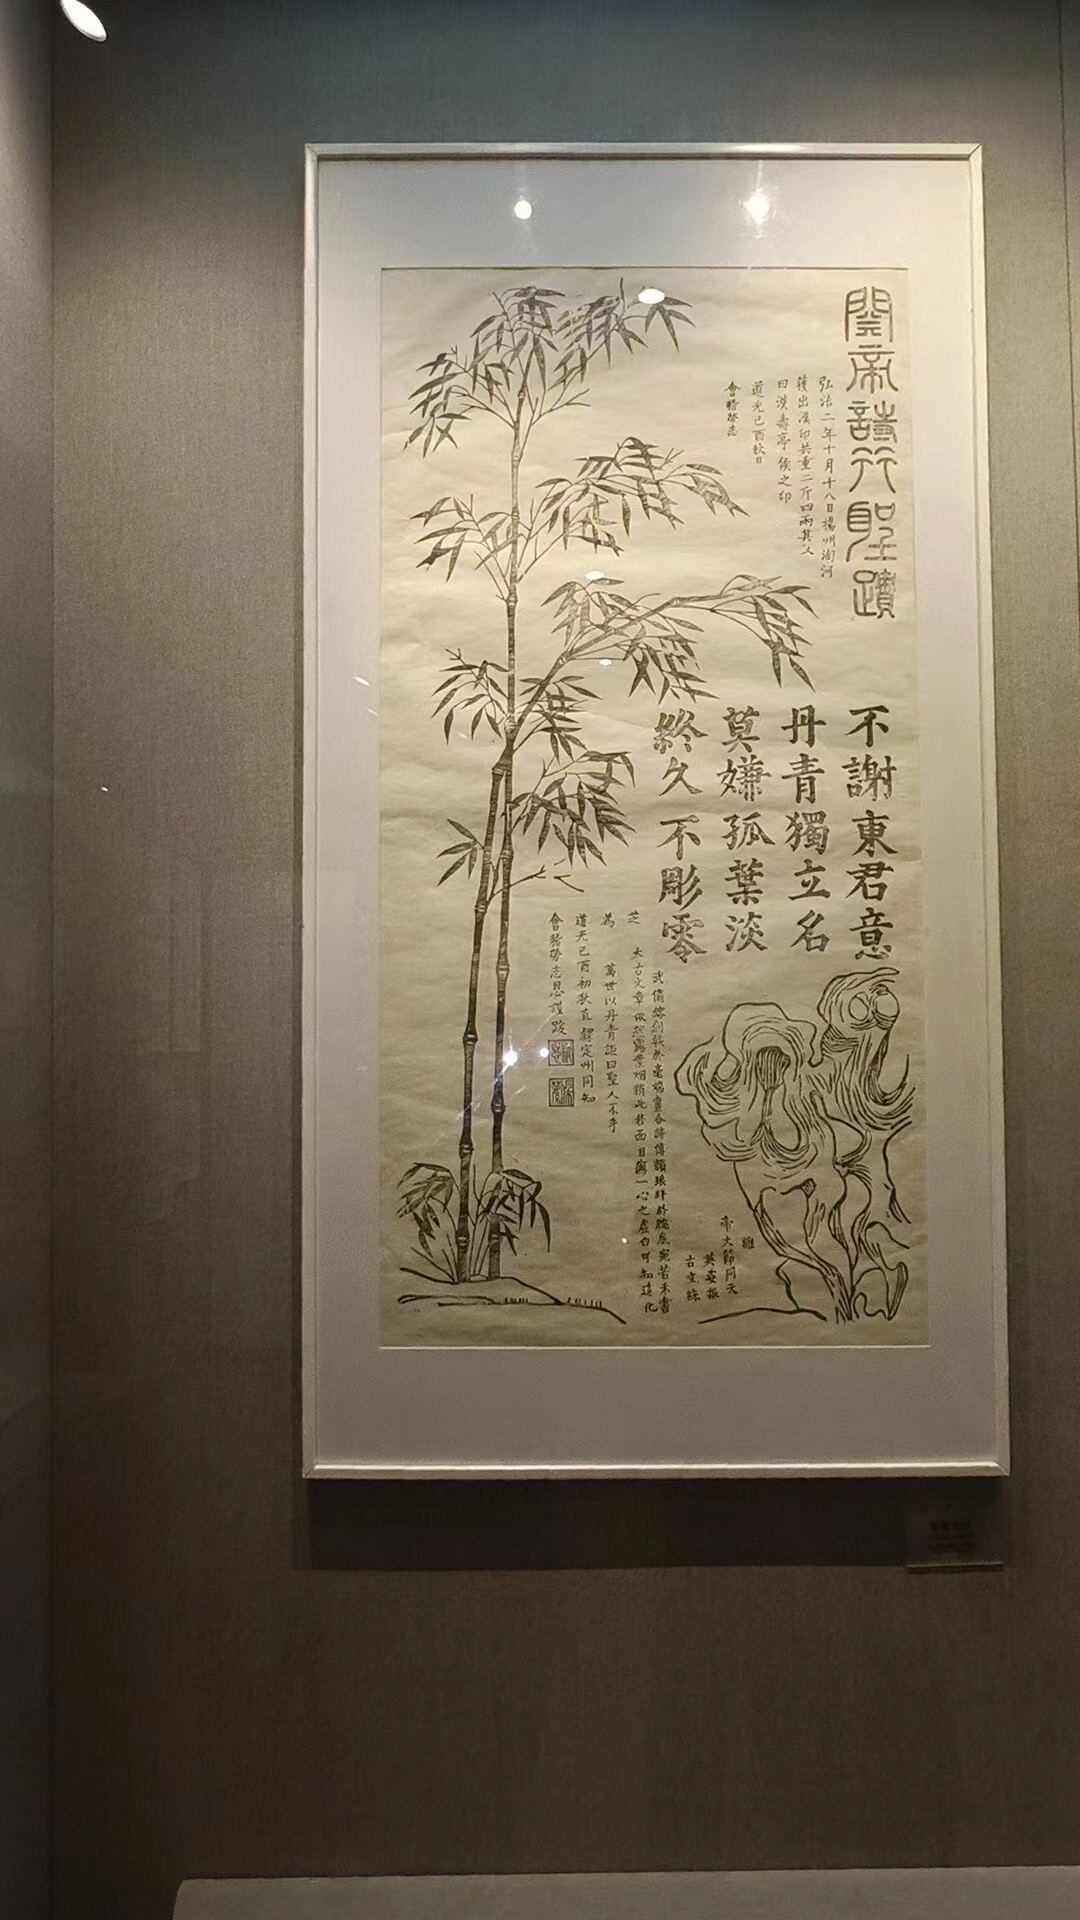 關帝詩竹聖蹟
弘治二年十月十八日揚州淘河
獲出漢印共重二斤四兩其文
曰漢壽亭侯之印
道光己酉秋日
會稽勞志
不謝東君意
丹青獨立名
莫嫌孤葉淡
終久不彫零
雖
帝大節同天
英靈振
古文綵
武偹鎔剑戟於毫端畫合詩傳韻琅玕於腕底宛若禾書
太古文章傲然露葉烟梢此君面目與一心之虛白可知造化
芝
為 萬世以丹青詎曰聖人不手
道光己酉初秋直隸定州同知
會稽勞志恩謹跋